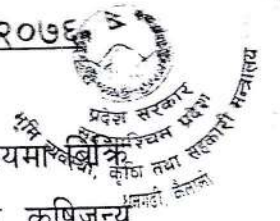 २०७६
प्रदेश सरकार
सुदूरपश्चिम प्रदेश
भूमि व्यवस्था, कृषि तथा सहकारी मन्त्रालय
धनगढी, कैलाली
यमा बिक्रि
कृषिजन्य